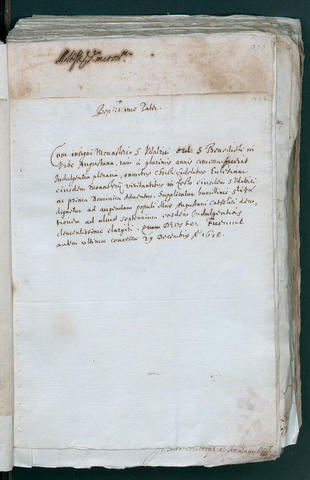 Beatissime Pater
Cum insigni Monasterio S Udalrici Ord. S Benedicti in
Urbe Augustana, iam à plurimis annis concessa fuerit
Indulgentia plenaria, omnibus Christi fidelibus Ecclesiam
eiusdem Monasterij visitantibus in festo eiusdem S Udalrici
ac prima Dominica Adventus. Supplicatur humillime S.
dignetur ad augendam populi illius Augustani catholici devo
tionem ad aliud septennium easdem Indulgentias
clementissime elargiri. quam Fuerunt
autem ultimo concessae 29 Decembris 1618.